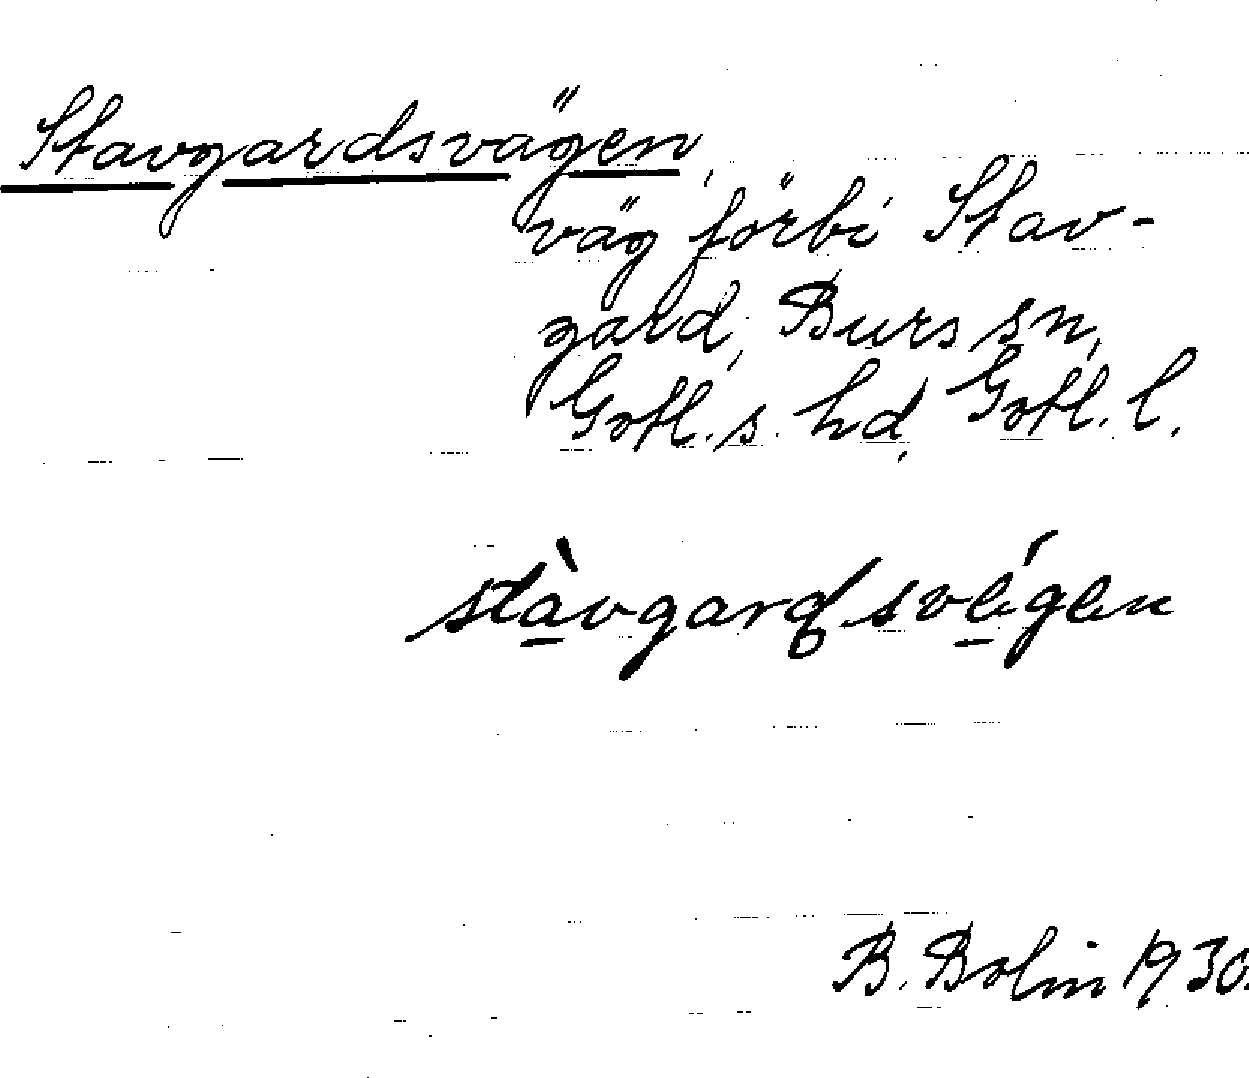 Stavgardsvägen,
väg förbi Stav-
gard, Burs sn,
Gotl. s. hd, Gotl. l.
stàvgardsvégen
B. Bolin 1930.